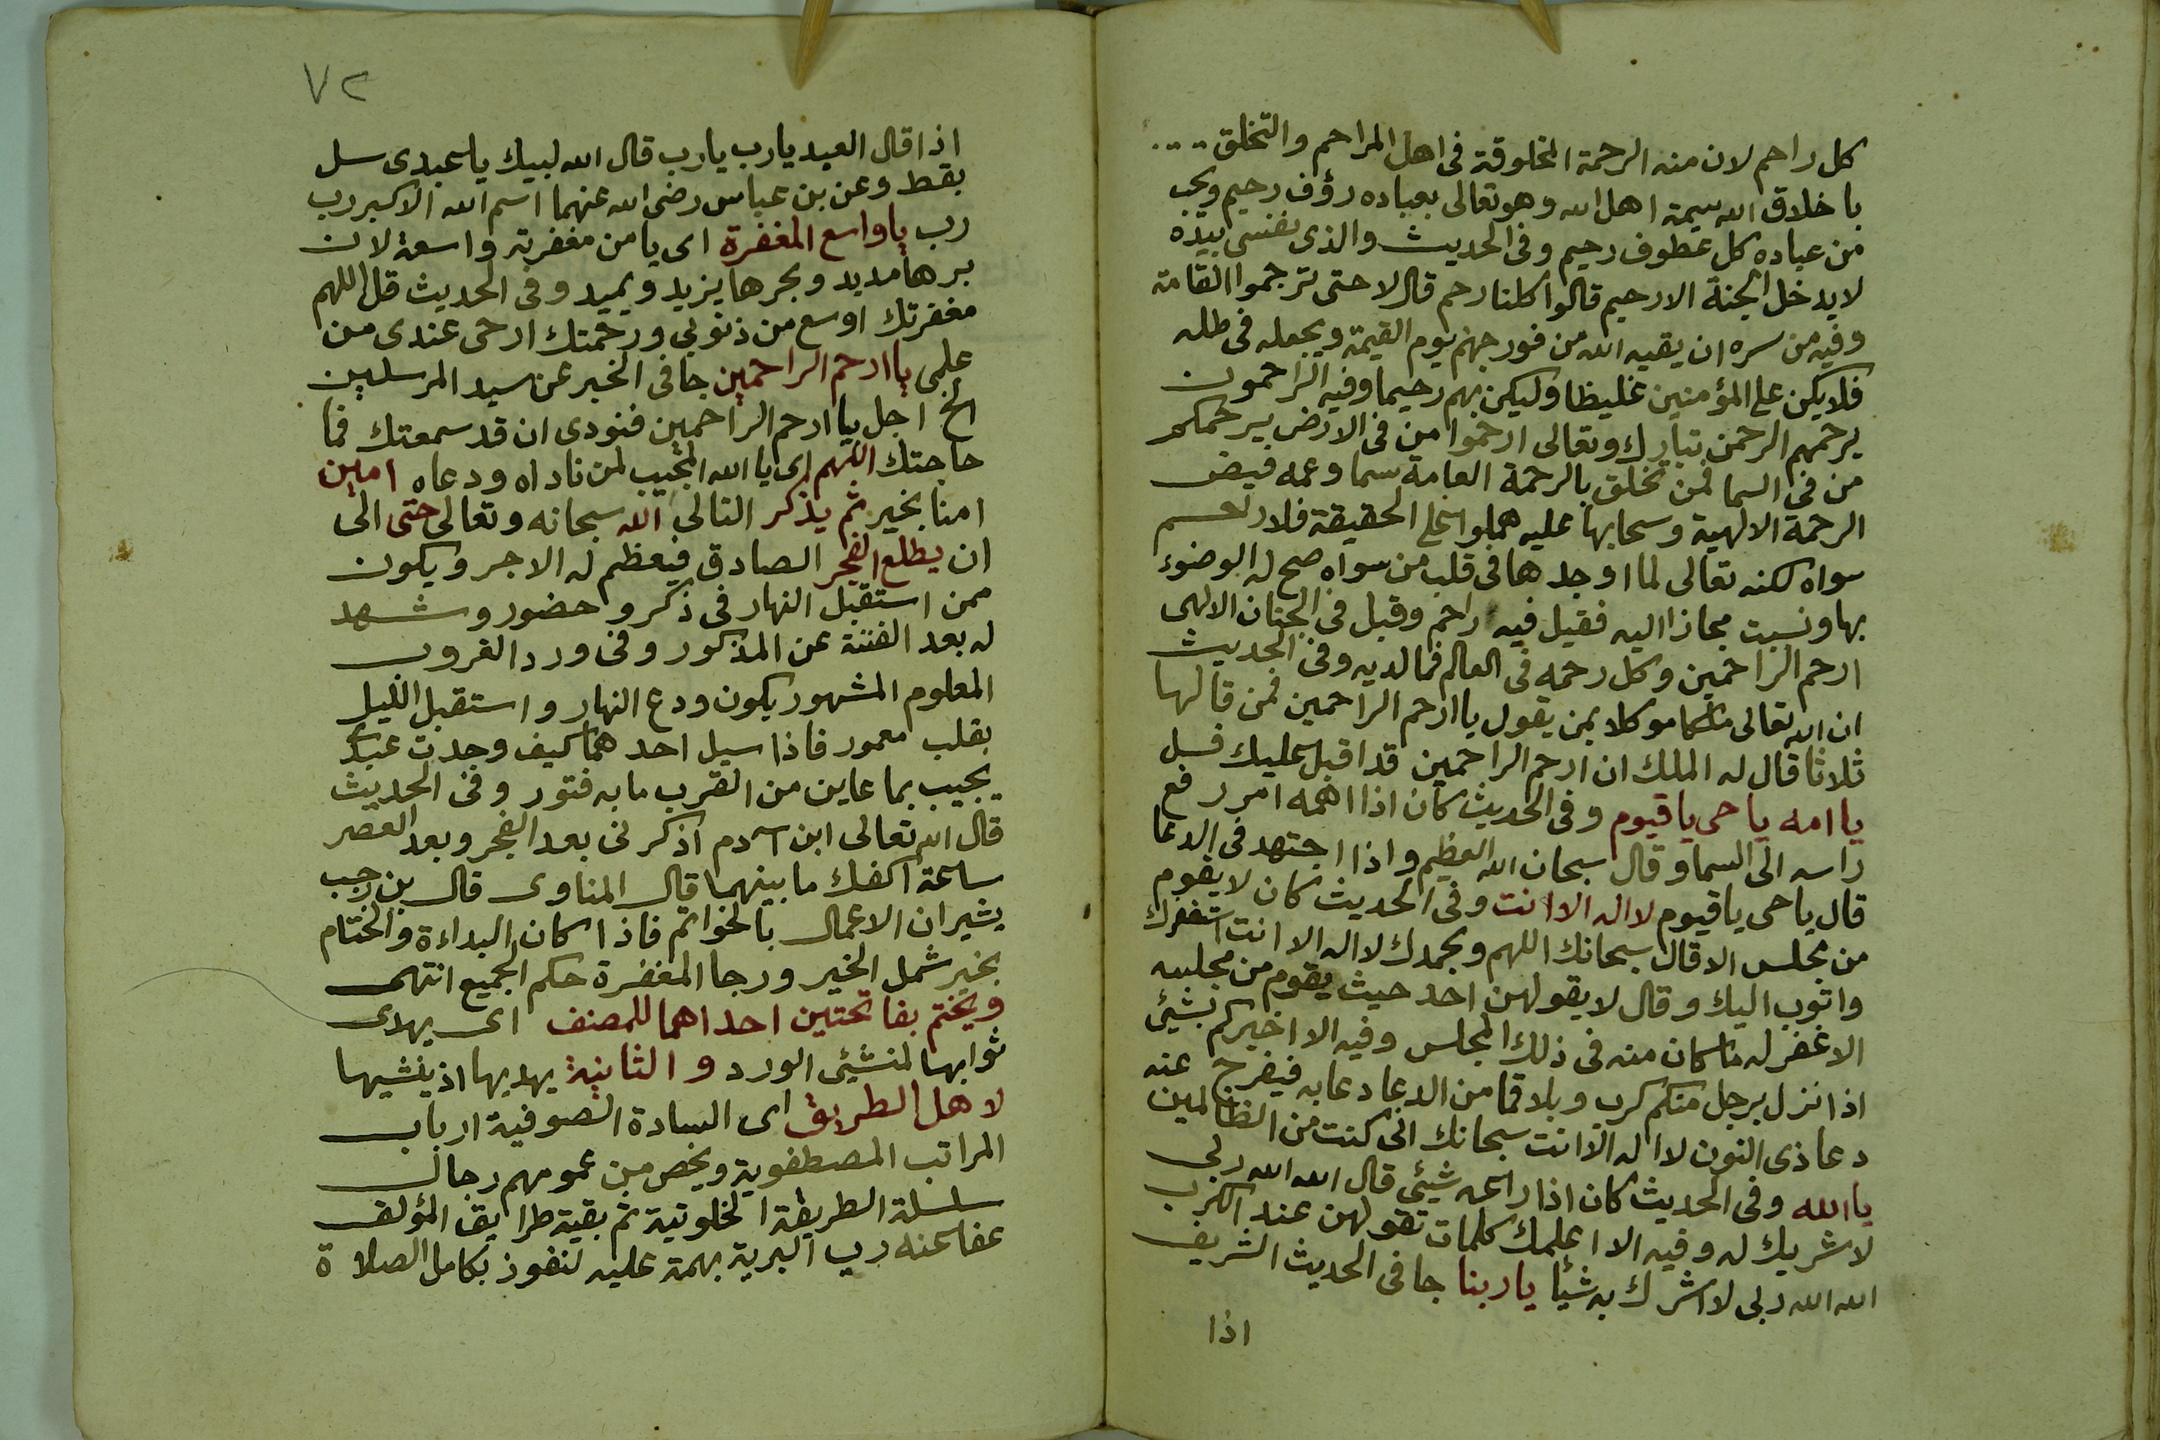 كل راحم لان منه الرحمة المخلوقة فى اهل المراحم والتخلق
باخلاق الله سيمة اهل الله وهو تعالى بعباده رؤف رحيم ويحب
من عباده كل عطوف رحيم وفى الحديث والذى نفسى بيده
لا يدخل الجنة الا رحيم قالوا كلنا رحم قال لا حتى ترحموا القامة
وفيه من سره ان يقيه الله من فور جهنم يوم القيمة ويجعله فى ظله
فلا يكن على المؤمنين غليظا وليكن بهم رحيما وفيه الراحمون
يرحمهم الرحمن تبارك وتعالى ارحموا من فى الارض يرحمكم
من فى السما فمن تخلق بالرحمة العامة سما وعمه فيض
الرحمة الالهية وسحابها عليه هما وا على الحقيقة فلا راحم
سواه لكنه تعالى لما اوجدها فى قلب من سواه صح له الوضوء
بها ونسبت مجازا اليه فقيل فيه راحم وقيل فى الجنان الالهى
ارحم الراحمين وكل رحمه فى العالم فما لديه وفى الحديث
ان لله تعالى ملكا موكلا بمن يقول يا ارحم الراحمين فمن قالها
ثلاثا قال له الملك ان ارحم الراحمين قد اقبل عليك فسل
يا الله يا حى يا قيوم وفى الحديث كان اذا اهمه امر رفع
راسه الى السما وقال سبحان الله العظيم واذا اجتهد فى الدعا
قال يا حى يا قيوم لا اله الا انت وفى الحديث كان لا يقوم
من مجلس الا قال سبحانك اللهم وبحمدك لا اله الا انت استغفرك
واتوب اليك وقال لا يقولهن احد حيث يقوم من مجلسه
الا غفر له ما كان منه فى ذلك المجلس وفيه الا اخبركم بشيئ
اذا نزل برجل منكم كرب وبلا قما من الدعا دعا به فيفرج عنه
دعا ذى النون لا اله الا انت سبحانك انى كنت من الظالمين
يا الله وفى الحديث كان اذا راعه شيئ قال الله الله ربى
لا شريك له وفيه الا اعلمك كلمات تقولهن عند الكرب
الله الله ربى لا اشرك به شيئا يا ربنا جا فى الحديث الشريف
اذا
٧٢
اذا قال العبد يا رب يا رب قال الله لبيك يا عبدى سل
بقط وعن بن عباس رضى الله عنهما اسم الله الاكبر رب
رب يا واسع المغفرة اى يا من مغفرته واسعة لان
برها مديد وبحرها يزيد ويميد وفى الحديث قل اللهم
مغفرتك اوسع من ذنوبى ورحمتك ارحى عندى من
علمى يا ارحم الراحمين جا فى الخبر عن سيد المرسلين
الخ اجل يا ارحم الراحمين فنودى ان قد سمعتك فما
حاجتك اللهم اى يا الله المجيب لمن ناداه ودعاه امين
امنا بخير ثم يذكر التالى الله سبحانه وتعالى حتى الى
ان يطلع الفجر الصادق فيعظم له الاجر ويكون
ممن استقبل النهار فى ذكر وحضور وشهد
له بعد الفتنة عن المذكور وفى ورد الغروب
المعلوم المشهور يكون ودع النهار واستقبل الليل
بقلب معمور فاذا سيل احدهما كيف وجدت عبدى
يجيب بما عاين من القرب ما به فتور وفى الحديث
قال الله تعالى ابن ادم اذكرنى بعد الفجر وبعد العصر
ساعة اكفك ما بينهما قال المناوى قال بن رجب
يشير ان الاعمال بالخواتم فاذا كان البداءة والختام
بخير شمل الخير ورجا المغفرة حكم الجميع انتهى
ويختم بفاتحتين احداهما للمصنف اى يهدى
ثوابها لمنشئ الورد والثانية يهديها اذ ينشيها
لاهل الطريق اى السادة الصوفية ارباب
المراتب المصطفوية ويخص من عمومهم رجال
سلسلة الطريقة الخلوتية ثم بقية طرايق المؤلف
عفا عنه رب البرية بهمة عليه لنفوذ بكامل الصلاة